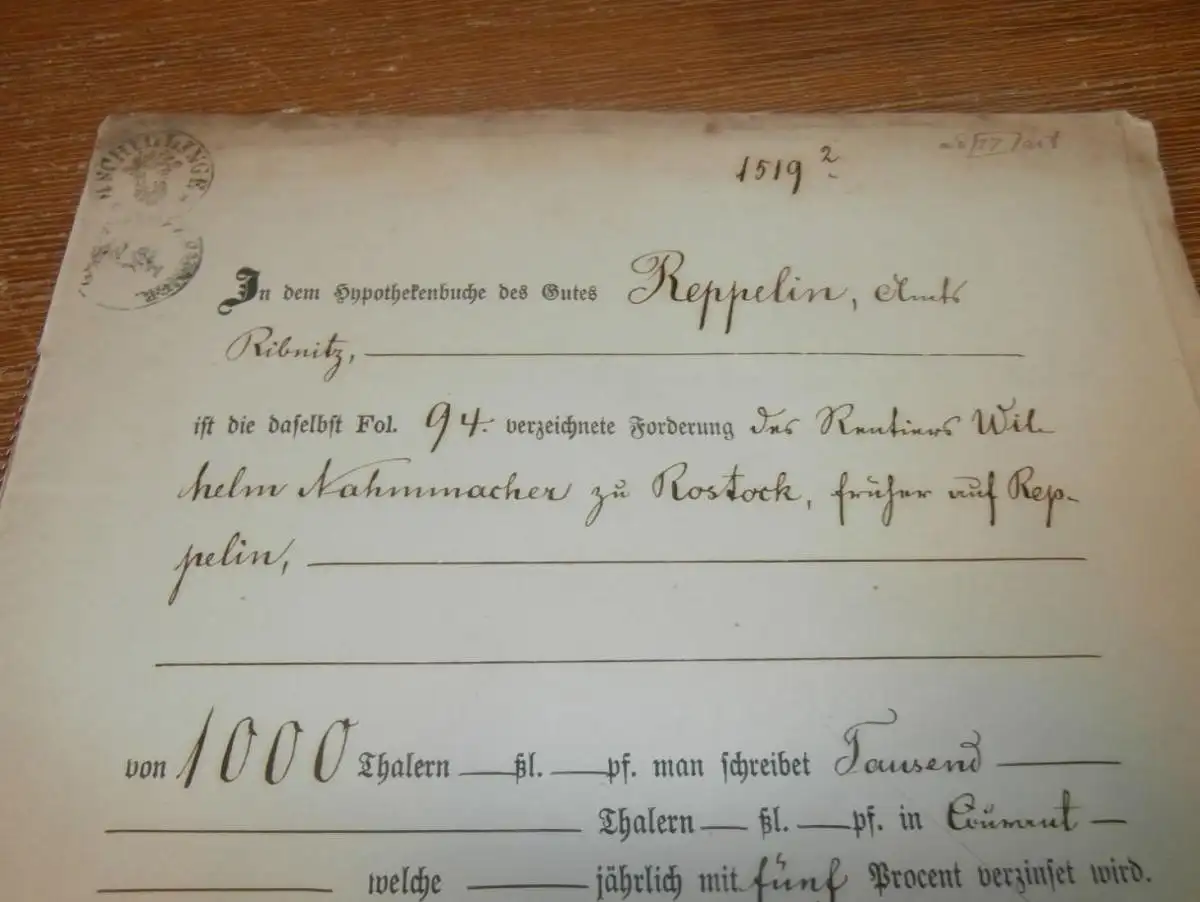 SCHILLINGE
1519 2.
In dem Hypothekenbuche des Gutes Reppelin, Amts
Ribnitz,
ist die daselbst Fol. 94. verzeichnete Forderung des Rentiers Wil-
helm Nahmmacher zu Rostock, früher auf Rep-
pelin,
von 1000 Thalern ßl. pf. man schreibet Tausend
Thalern ßl. pf. in Courant
welche jährlich mit fünf Procent verzinset wird.